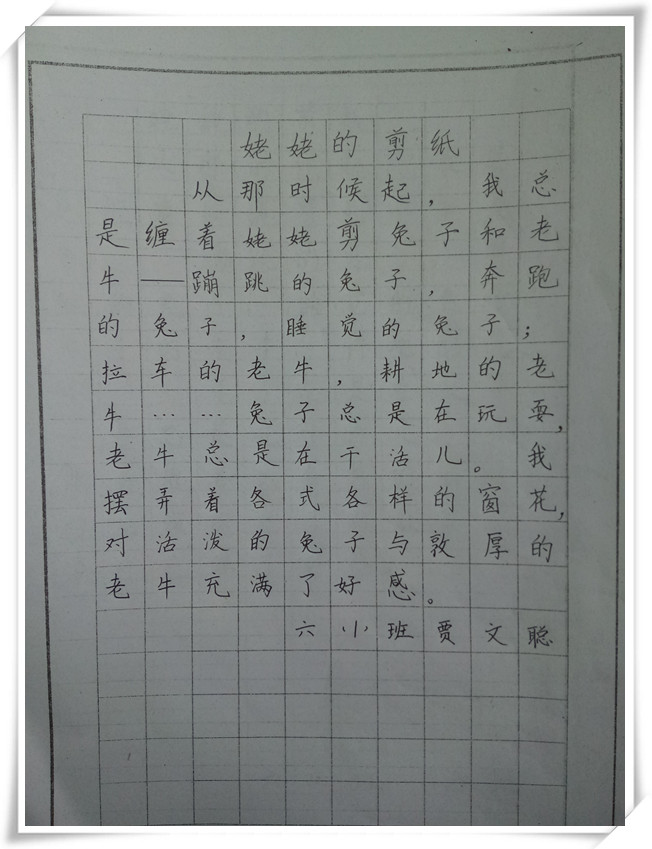 姥姥的剪纸
从那时候起，我总
是缠着姥姥剪兔子和老
牛——蹦跳的兔子，奔跑
的兔子，睡觉的兔子；
拉车的老牛，耕地的老
牛……兔子总是在玩耍，
老牛总是在干活儿。我
摆弄着各式各样的窗花，
对活泼的兔子与敦厚的
老牛充满了好感。
六小班贾文聪